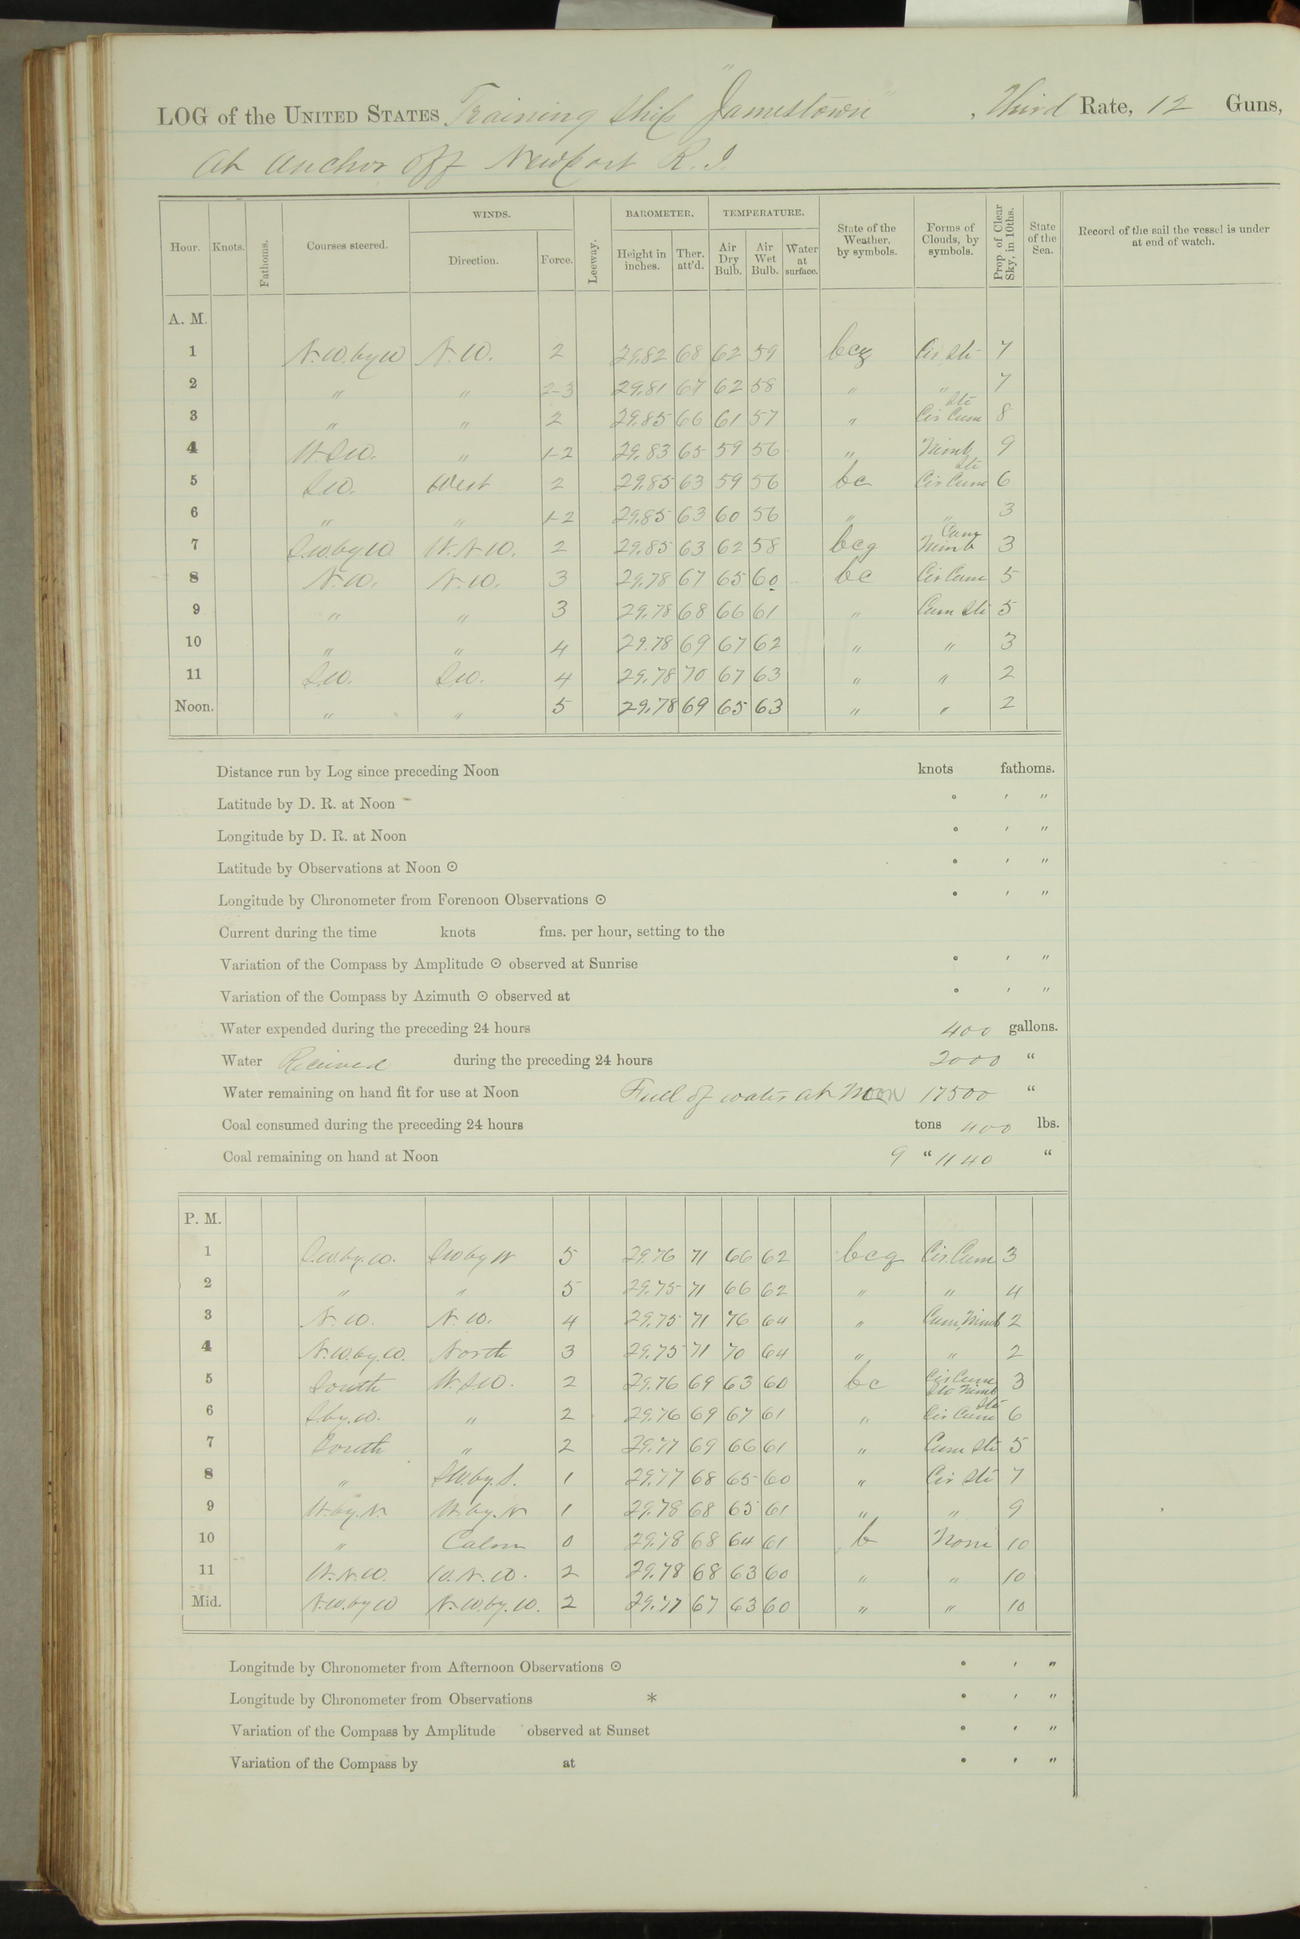 LOG of the UNITED STATES Training Ship "Jamestown", Third Rate, 12 Guns,
At anchor off Newport R.I.
Hour. Knots. Fathoms. Courses steered. WINDS. Direction. Force. Leeway. BAROMETER. Height in inches. Ther. att'd. TEMPERATURE. Air Dry Bulb. Air Wet Bulb. Water at surface. State of the Weather, by symbols. Forms of Clouds, by symbols. Prop. of Clear Sky, in 10ths. State of the Sea. Record of the sail the vessel is under at end of watch.
A. M.
1 N.W. by W N.W. 2 29.82 68 62 59 bcq Cir Sti 7
2 " " 2-3 29.81 67 62 58 " " 7
3 " " 2 29.85 66 61 57 " Cir Cum Sti 8
4 W.S.W. " 1-2 29.83 65 59 56 " Nimb 9
5 S.W. West 2 29.85 63 59 56 bc Cir Cum Sti 6
6 " " 1-2 29.85 63 60 56 " " 3
7 S.W. by W W.N.W. 2 29.85 63 62 58 bcq Cum Nimb 3
8 N.W. N.W. 3 29.78 67 65 60 bc Cir Cum 5
9 " " 3 29.78 68 66 61 " Cum Sti 5
10 " " 4 29.78 69 67 62 " " 3
11 S.W. S.W. 4 29.78 70 67 63 " " 2
Noon. " " 5 29.78 69 65 63 " " 2
Distance run by Log since preceding Noon knots fathoms.
Latitude by D. R. at Noon ° ′ ″
Longitude by D. R. at Noon ° ′ ″
Latitude by Observations at Noon ☉ ° ′ ″
Longitude by Chronometer from Forenoon Observations ☉ ° ′ ″
Current during the time knots fms. per hour, setting to the
Variation of the Compass by Amplitude ☉ observed at Sunrise ° ′ ″
Variation of the Compass by Azimuth ☉ observed at ° ′ ″
Water expended during the preceding 24 hours 400 gallons.
Water Received during the preceding 24 hours 2000 "
Water remaining on hand fit for use at Noon Full of water at Noon 17500 "
Coal consumed during the preceding 24 hours tons 400 lbs.
Coal remaining on hand at Noon 9 " 1140 "
P. M.
1 S.W. by W. SW by W 5 29.76 71 66 62 bcq Cir. Cum 3
2 " " 5 29.75 71 66 62 " " 4
3 N.W. N.W. 4 29.75 71 76 64 " Cum. Nimb 2
4 N.W. by W. North 3 29.75 71 70 64 " " 2
5 South W.S.W. 2 29.76 69 63 60 bc Cir Cum Sto Nimb 3
6 S. by W. " 2 29.76 69 67 61 " Cir Cum Sti 6
7 South " 2 29.77 69 66 61 " Cum Sti 5
8 " SW. by S. 1 29.77 68 65 60 " Cir Sti 7
9 W. by N. W. by N 1 29.78 68 65 61 " " 9
10 " Calm 0 29.78 68 64 61 b None 10
11 W.N.W. W.N.W. 2 29.78 68 63 60 " " 10
Mid. N.W. by W N.W. by W. 2 29.77 67 63 60 " " 10
Longitude by Chronometer from Afternoon Observations ☉ ° ′ ″
Longitude by Chronometer from Observations * ° ′ ″
Variation of the Compass by Amplitude observed at Sunset ° ′ ″
Variation of the Compass by at ° ′ ″